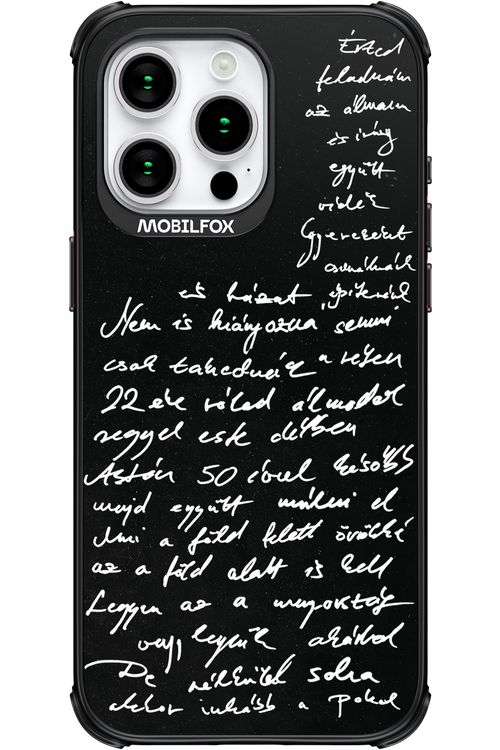 MOBILFOX
Érted
feladnám
az álmam
és így
együtt
veled
Gyerekeket
csinálnánk
és házat építenénk
Nem is hiányozna semmi
csak takednác a
22 éve rólad álmodok
reggel este délben
Aztán 50 évvel később
majd együtt múlni el
Ami a föld felett örökké
az a föld alatt is kell
Legyen az a mennyország
vagy legyünk akárhol
De nélküled soha
akkor inkább a Pokol